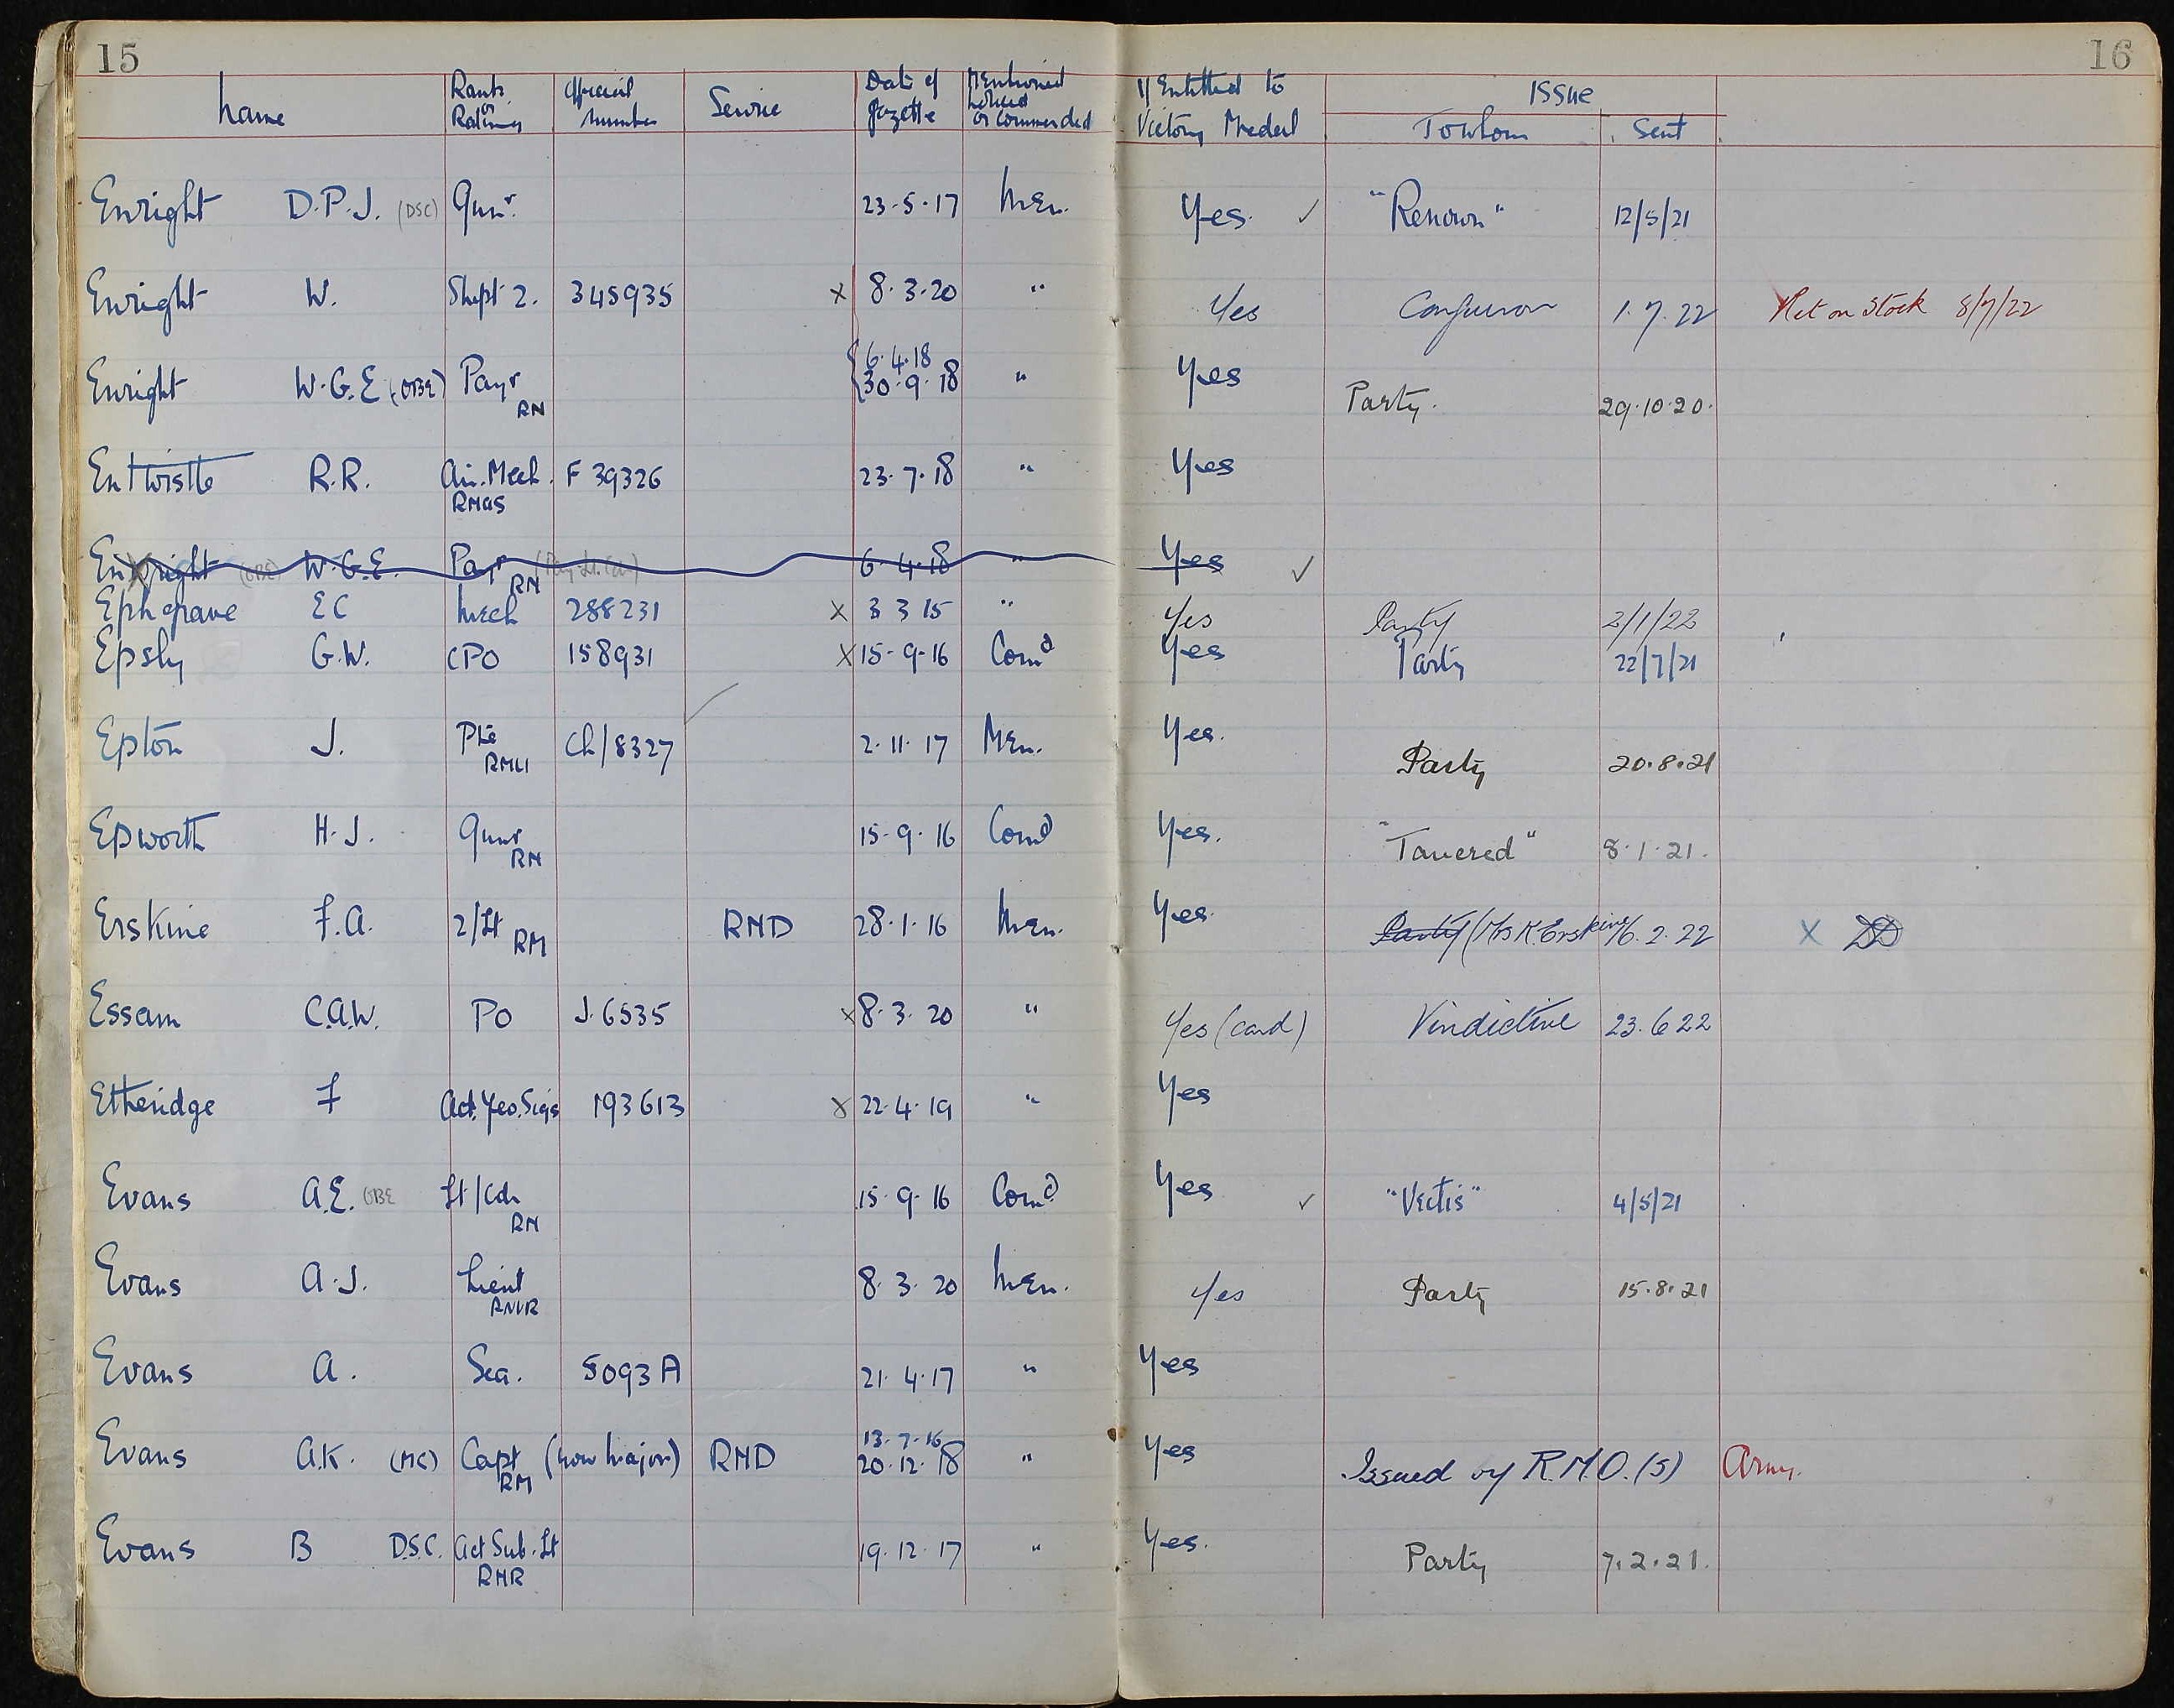 15
16
Name Rank or Rating Official Number Service Date of Gazette Mentioned noted or Commended If Entitled to Victory Medal Issue To whom Sent
Enright D.P.J. (DSC) Gunr. 23-5-17 Men. Yes. ✓ "Renown" 12/5/21
Enright W. Shpt 2. 345935 X 8.3.20 " Yes 1.7.22 Ret on Stock 8/7/22
Enright W.G.E (OBE) Payr RN {6.4.18 30.9.18 " Yes Party. 29.10.20.
Entwistle R.R. Air. Mech. RNAS F 39326 23.7.18 " Yes
Enright (OBE) W.G.E. Payr RN 6.4.18 " Yes ✓
Ephgrave EC Mech 288231 X 3 3 15 " Yes Party 2/1/23
Epsly G.W. CPO 158931 X 15-9-16 Comd Yes Party 22/7/21
Epton J. Pte RMLI Ch/8327 2.11.17 Men. Yes. Party 20.8.21
Epworth H.J. Gunr RN 15-9-16 Comd Yes. "Tancred" 8.1.21.
Erskine F.A. 2/Lt RM RND 28.1.16 Men. Yes. Party (Mrs K. Erskine 16.2.22 X
Essam C.A.W. PO J.6535 X 8.3.20 " Yes (card) Vindictive 23.6 22
Etheridge F Act. Yeo. Sigs 193613 X 22.4.19 " Yes
Evans A.E. OBE Lt/Cdr RN 15.9.16 Comd. Yes ✓ "Vectis" 4/5/21
Evans A.J. Lieut RNVR 8.3.20 Men. Yes Party 15.8.21
Evans A. Sea. 5093 A 21.4.17 " Yes
Evans A.K. (MC) Capt RM (now Major) RND 13.7.16 20.12.18 " Yes Issued by R.M.O.(S) Army.
Evans B D.S.C. Act Sub. Lt RNR 19.12.17 " Yes. Party 7.2.21.